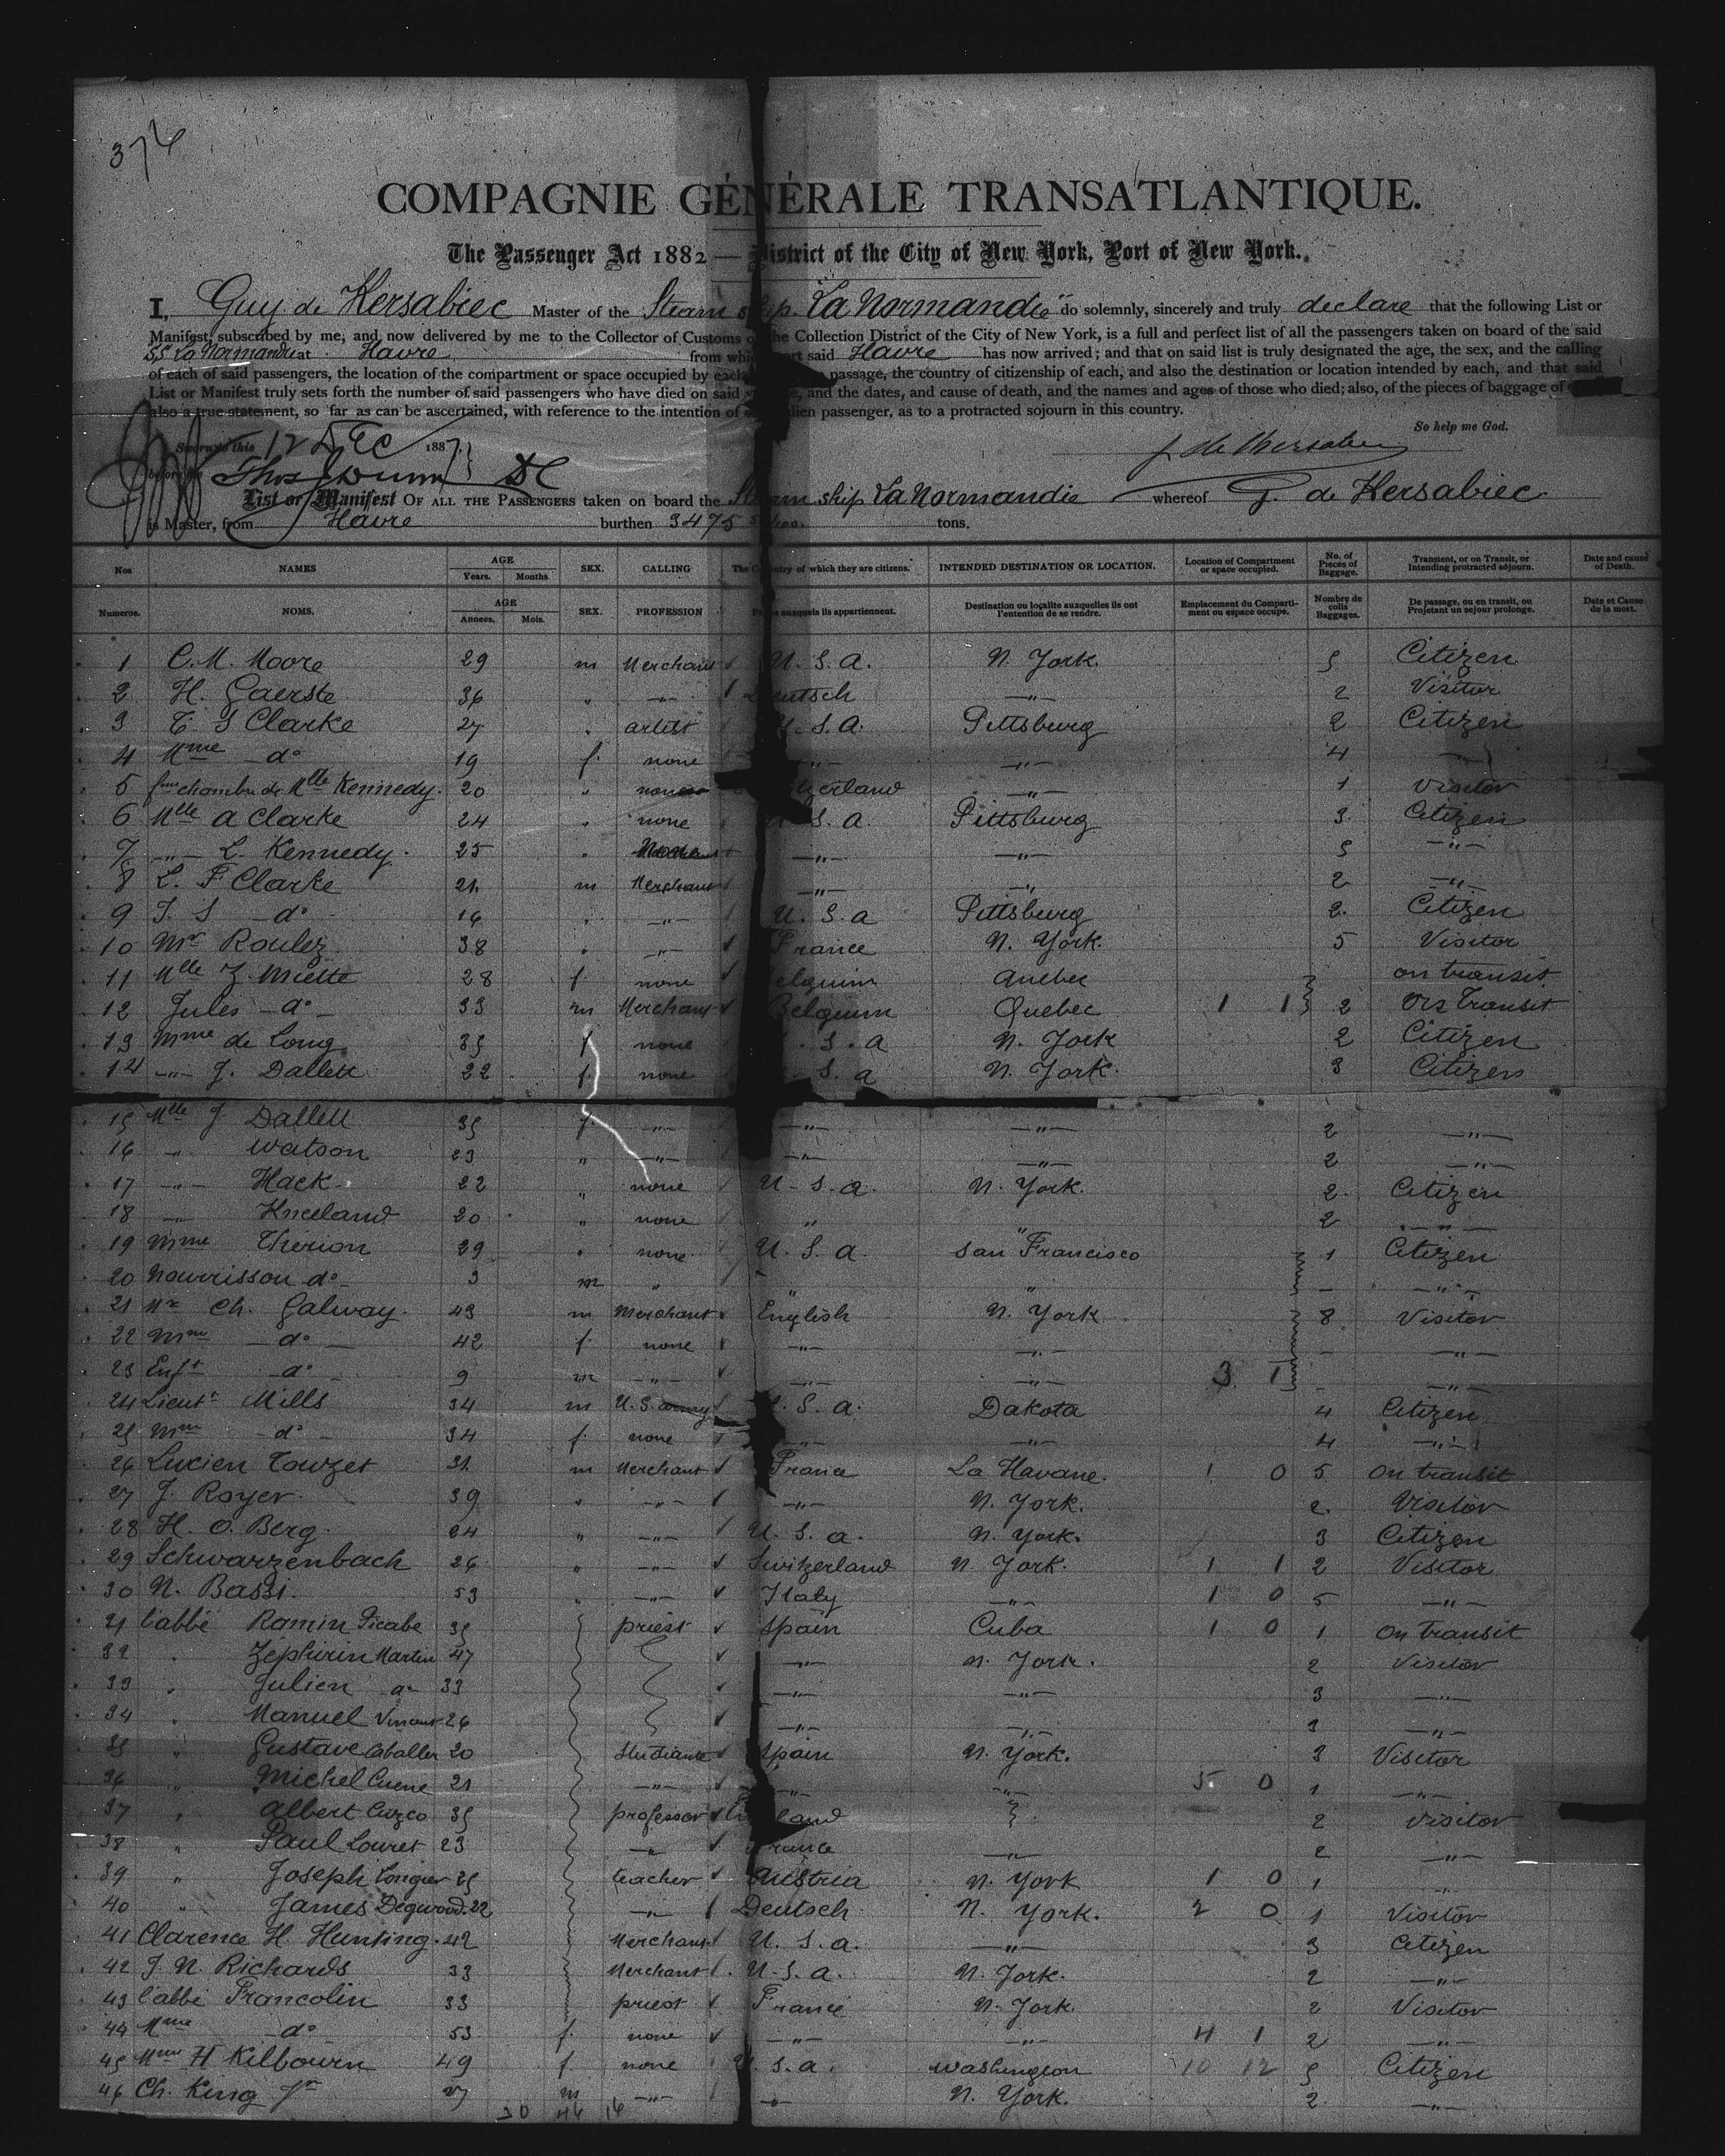 374
COMPAGNIE GÉNÉRALE TRANSATLANTIQUE.
The Passenger Act 1882 — District of the City of New York, Port of New York.
I, Guy de Kersabiec Master of the Steam ship La Normandie do solemnly, sincerely and truly declare that the following List or
Manifest, subscribed by me, and now delivered by me to the Collector of Customs of the Collection District of the City of New York, is a full and perfect list of all the passengers taken on board of the said
SS La Normandie at Havre from which port said Havre has now arrived; and that on said list is truly designated the age, the sex, and the calling
of each of said passengers, the location of the compartment or space occupied by each passage, the country of citizenship of each, and also the destination or location intended by each, and that said
List or Manifest truly sets forth the number of said passengers who have died on said , and the dates, and cause of death, and the names and ages of those who died; also, of the pieces of baggage of
also a true statement, so far as can be ascertained, with reference to the intention of alien passenger, as to a protracted sojourn in this country.
So help me God.
Sworn to this 12 Dec 1887
before me Thos J Dunn DC
G de Kersabiec
List or Manifest OF ALL THE PASSENGERS taken on board the Steam ship La Normandie whereof G. de Kersabiec
is Master, from Havre burthen 3475 tons.
Nos NAMES AGE Years. Months SEX. CALLING The Country of which they are citizens. INTENDED DESTINATION OR LOCATION. Location of Compartment or space occupied. No. of Pieces of Baggage. Transient, or on Transit, or Intending protracted séjourn. Date and cause of Death.
Numeros. NOMS. AGE Annees. Mois. SEX. PROFESSION Pays auxquels ils appartiennent. Destination ou localite auxquelles ils ont l'entention de se rendre. Emplacement du Compartiment ou espace occupe. Nombre de colis Baggages. De passage, ou en transit, ou Projetant un sejour prolonge. Date et Cause de la mort.
1 C. M. Moore 29 m Merchant U. S. A. N. York. 5 Citizen
2 H. Gaerste 36 " —"— Deutsch —"— 2 Visitor
3 C. S Clarke 27 " artist U. S. A. Pittsburg 2 Citizen
4 Mme do 19 f. none —"— —"— 4 —"—
5 fme chambre de Mlle Kennedy. 20 " none —"— 1 Visitor
6 Mlle A Clarke 24 " none U. S. A. Pittsburg 3 Citizen
7 —"— L. Kennedy. 25 " None —"— —"— 5 —"—
8 L. F Clarke 21 m Merchant —"— —"— 2 —"—
9 T. S do 16 " —"— U. S. A Pittsburg 2 Citizen
10 Mr Roulez 38 " —"— France N. York. 5 Visitor
11 Mlle Z. Miette 28 f. none Belguim Quebec on transit
12 Jules do 33 m Merchant Belguim Quebec 1 1 2 On Transit
13 Mme de Long 35 f none U. S. A N. York 2 Citizen
14 —"— J. Dallett 22 f. none U. S. A N. York. 3 Citizen
15 Mlle J. Dallett 35 f. —"— —"— —"— 2 —"—
16 —"— Watson 23 " —"— —"— —"— 2 —"—
17 —"— Hack 22 " none U. S. A. N. York. 2 Citizen
18 —"— Kneeland 20 " none " " 2 —"—
19 Mme Therion 29 " none U. S. A. San Francisco 1 Citizen
20 Nourrisson do 3 m " " " — —"—
21 Mr Ch. Galway. 43 m Merchant English N. York 8 Visitor
22 Mme do 42 f. none —"— —"— - —"—
23 Enft do 9 m —"— —"— —"— 3 1 - —"—
24 Lieutt Mills 34 m U. S. army U. S. A. Dakota 4 Citizen
25 Mme do 34 f. none —"— —"— 4 —"—
26 Lucien Touzet 31 m Merchant France La Havane. 1 0 5 On transit
27 J. Royer. 39 " —"— —"— N. York. 2 Visitor
28 H. O. Berg. 24 " —"— U. S. A. N. York. 3 Citizen
29 Schwarzenbach 26 " —"— Switzerland N. York. 1 1 2 Visitor
30 N. Bassi. 53 " —"— Italy —"— 1 0 5 —"—
31 l'abbé Ramin Picabe 35 priest Spain Cuba 1 0 1 On transit
32 " Zephirin Martin 47 —"— N. York. 2 Visitor
33 " Julien do 33 —"— —"— 3 —"—
34 " Manuel Vincent 26 —"— —"— 3 —"—
35 " Gustave Caballer 20 Studiant Spain N. York. 3 Visitor
36 " Michel Cuene 21 —"— —"— —"— 5 0 1 —"—
37 " Albert Cuzco 35 professor 2 Visitor
38 " Paul Louret 23 —"— France —"— 2 —"—
39 " Joseph Longier 25 teacher Austria N. York 1 0 1 "
40 " James Degwood. 22 —"— Deutsch N. York. 2 0 1 Visitor
41 Clarence H. Hunting. 42 Merchant U. S. A. —"— 3 Citizen
42 J. N. Richards 33 Merchant U. S. A. N. York. 2 —"—
43 l'abbé Francolin 33 priest France N. York. 2 Visitor
44 Mme do 53 f. none —"— —"— 4 1 2 —"—
45 Mme H Kilbourn 49 f. none U. S. A. Washington 10 12 5 Citizen
46 Ch. King Jr 27 m —"— " N. York. 2 —"—
30 46 16